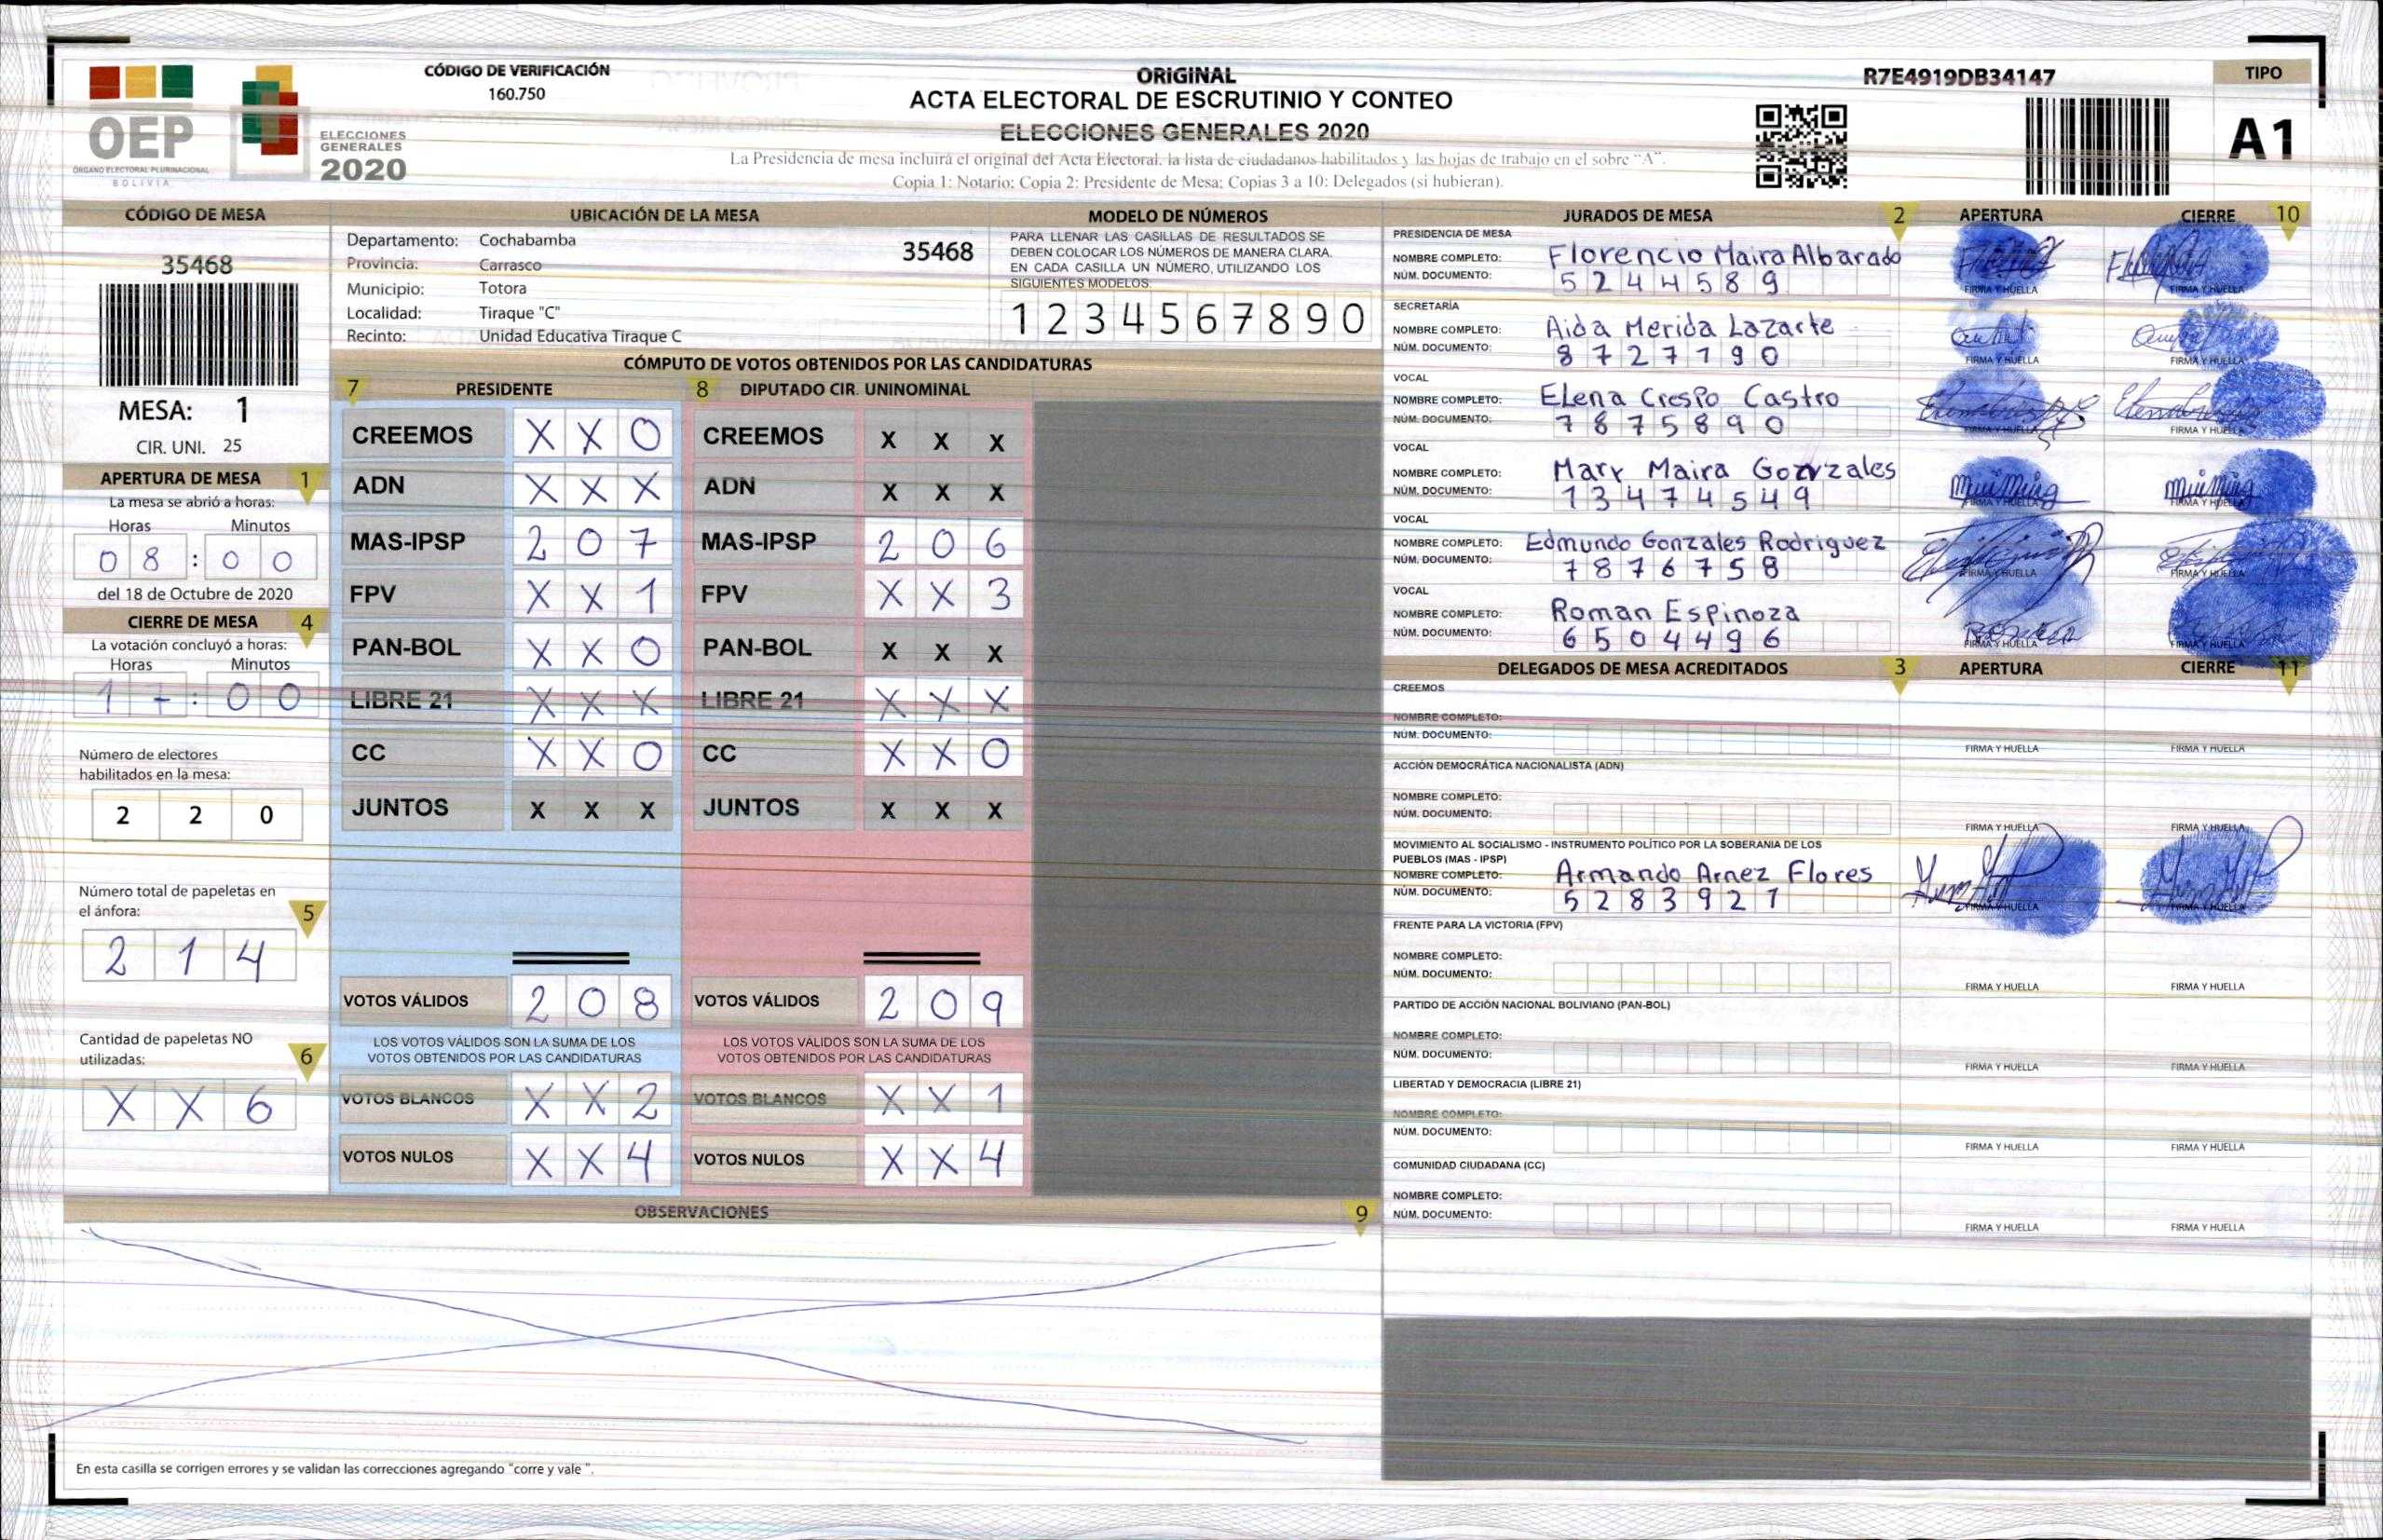 OEP
ÓRGANO ELECTORAL PLURINACIONAL
BOLIVIA
ELECCIONES
GENERALES
2020
CÓDIGO DE VERIFICACIÓN
160.750
ORIGINAL
ACTA ELECTORAL DE ESCRUTINIO Y CONTEO
ELECCIONES GENERALES 2020
La Presidencia de mesa incluirá el original del Acta Electoral, la lista de ciudadanos habilitados y las hojas de trabajo en el sobre "A".
Copia 1: Notario; Copia 2: Presidente de Mesa; Copias 3 a 10: Delegados (si hubieran).
R7E4919DB34147
TIPO
A1
CÓDIGO DE MESA
35468
MESA: 1
CIR. UNI. 25
APERTURA DE MESA 1
La mesa se abrió a horas:
Horas Minutos
0 8 : 0 0
del 18 de Octubre de 2020
CIERRE DE MESA 4
La votación concluyó a horas:
Horas Minutos
1 7 : 0 0
Número de electores
habilitados en la mesa:
2 2 0
Número total de papeletas en
el ánfora: 5
2 1 4
Cantidad de papeletas NO
utilizadas: 6
X X 6
UBICACIÓN DE LA MESA
Departamento: Cochabamba 35468
Provincia: Carrasco
Municipio: Totora
Localidad: Tiraque "C"
Recinto: Unidad Educativa Tiraque C
MODELO DE NÚMEROS
PARA LLENAR LAS CASILLAS DE RESULTADOS SE
DEBEN COLOCAR LOS NÚMEROS DE MANERA CLARA.
EN CADA CASILLA UN NÚMERO, UTILIZANDO LOS
SIGUIENTES MODELOS:
1 2 3 4 5 6 7 8 9 0
CÓMPUTO DE VOTOS OBTENIDOS POR LAS CANDIDATURAS
7 PRESIDENTE 8 DIPUTADO CIR. UNINOMINAL
CREEMOS X X 0 CREEMOS X X X
ADN X X X ADN X X X
MAS-IPSP 2 0 7 MAS-IPSP 2 0 6
FPV X X 1 FPV X X 3
PAN-BOL X X 0 PAN-BOL X X X
LIBRE 21 X X X LIBRE 21 X X X
CC X X 0 CC X X 0
JUNTOS X X X JUNTOS X X X
VOTOS VÁLIDOS 2 0 8 VOTOS VÁLIDOS 2 0 9
LOS VOTOS VÁLIDOS SON LA SUMA DE LOS LOS VOTOS VÁLIDOS SON LA SUMA DE LOS
VOTOS OBTENIDOS POR LAS CANDIDATURAS VOTOS OBTENIDOS POR LAS CANDIDATURAS
VOTOS BLANCOS X X 2 VOTOS BLANCOS X X 1
VOTOS NULOS X X 4 VOTOS NULOS X X 4
OBSERVACIONES 9
En esta casilla se corrigen errores y se validan las correcciones agregando "corre y vale ".
JURADOS DE MESA 2 APERTURA CIERRE 10
PRESIDENCIA DE MESA
NOMBRE COMPLETO: Florencio Maira Albarado
NÚM. DOCUMENTO: 5 2 4 4 5 8 9
FIRMA Y HUELLA FIRMA Y HUELLA
SECRETARÍA
NOMBRE COMPLETO: Aida Merida Lazarte
NÚM. DOCUMENTO: 8 7 2 7 1 9 0
FIRMA Y HUELLA FIRMA Y HUELLA
VOCAL
NOMBRE COMPLETO: Elena Crespo Castro
NÚM. DOCUMENTO: 7 8 7 5 8 9 0
FIRMA Y HUELLA FIRMA Y HUELLA
VOCAL
NOMBRE COMPLETO: Mary Maira Gonzales
NÚM. DOCUMENTO: 1 3 4 7 4 5 4 9
FIRMA Y HUELLA FIRMA Y HUELLA
VOCAL
NOMBRE COMPLETO: Edmundo Gonzales Rodriguez
NÚM. DOCUMENTO: 7 8 7 6 7 5 8
FIRMA Y HUELLA FIRMA Y HUELLA
VOCAL
NOMBRE COMPLETO: Roman Espinoza
NÚM. DOCUMENTO: 6 5 0 4 4 9 6
FIRMA Y HUELLA FIRMA Y HUELLA
DELEGADOS DE MESA ACREDITADOS 3 APERTURA CIERRE 11
CREEMOS
NOMBRE COMPLETO:
NÚM. DOCUMENTO:
FIRMA Y HUELLA FIRMA Y HUELLA
ACCIÓN DEMOCRÁTICA NACIONALISTA (ADN)
NOMBRE COMPLETO:
NÚM. DOCUMENTO:
FIRMA Y HUELLA FIRMA Y HUELLA
MOVIMIENTO AL SOCIALISMO - INSTRUMENTO POLÍTICO POR LA SOBERANIA DE LOS
PUEBLOS (MAS - IPSP)
NOMBRE COMPLETO: Armando Arnez Flores
NÚM. DOCUMENTO: 5 2 8 3 9 2 1
FIRMA Y HUELLA FIRMA Y HUELLA
FRENTE PARA LA VICTORIA (FPV)
NOMBRE COMPLETO:
NÚM. DOCUMENTO:
FIRMA Y HUELLA FIRMA Y HUELLA
PARTIDO DE ACCIÓN NACIONAL BOLIVIANO (PAN-BOL)
NOMBRE COMPLETO:
NÚM. DOCUMENTO:
FIRMA Y HUELLA FIRMA Y HUELLA
LIBERTAD Y DEMOCRACIA (LIBRE 21)
NOMBRE COMPLETO:
NÚM. DOCUMENTO:
FIRMA Y HUELLA FIRMA Y HUELLA
COMUNIDAD CIUDADANA (CC)
NOMBRE COMPLETO:
NÚM. DOCUMENTO:
FIRMA Y HUELLA FIRMA Y HUELLA